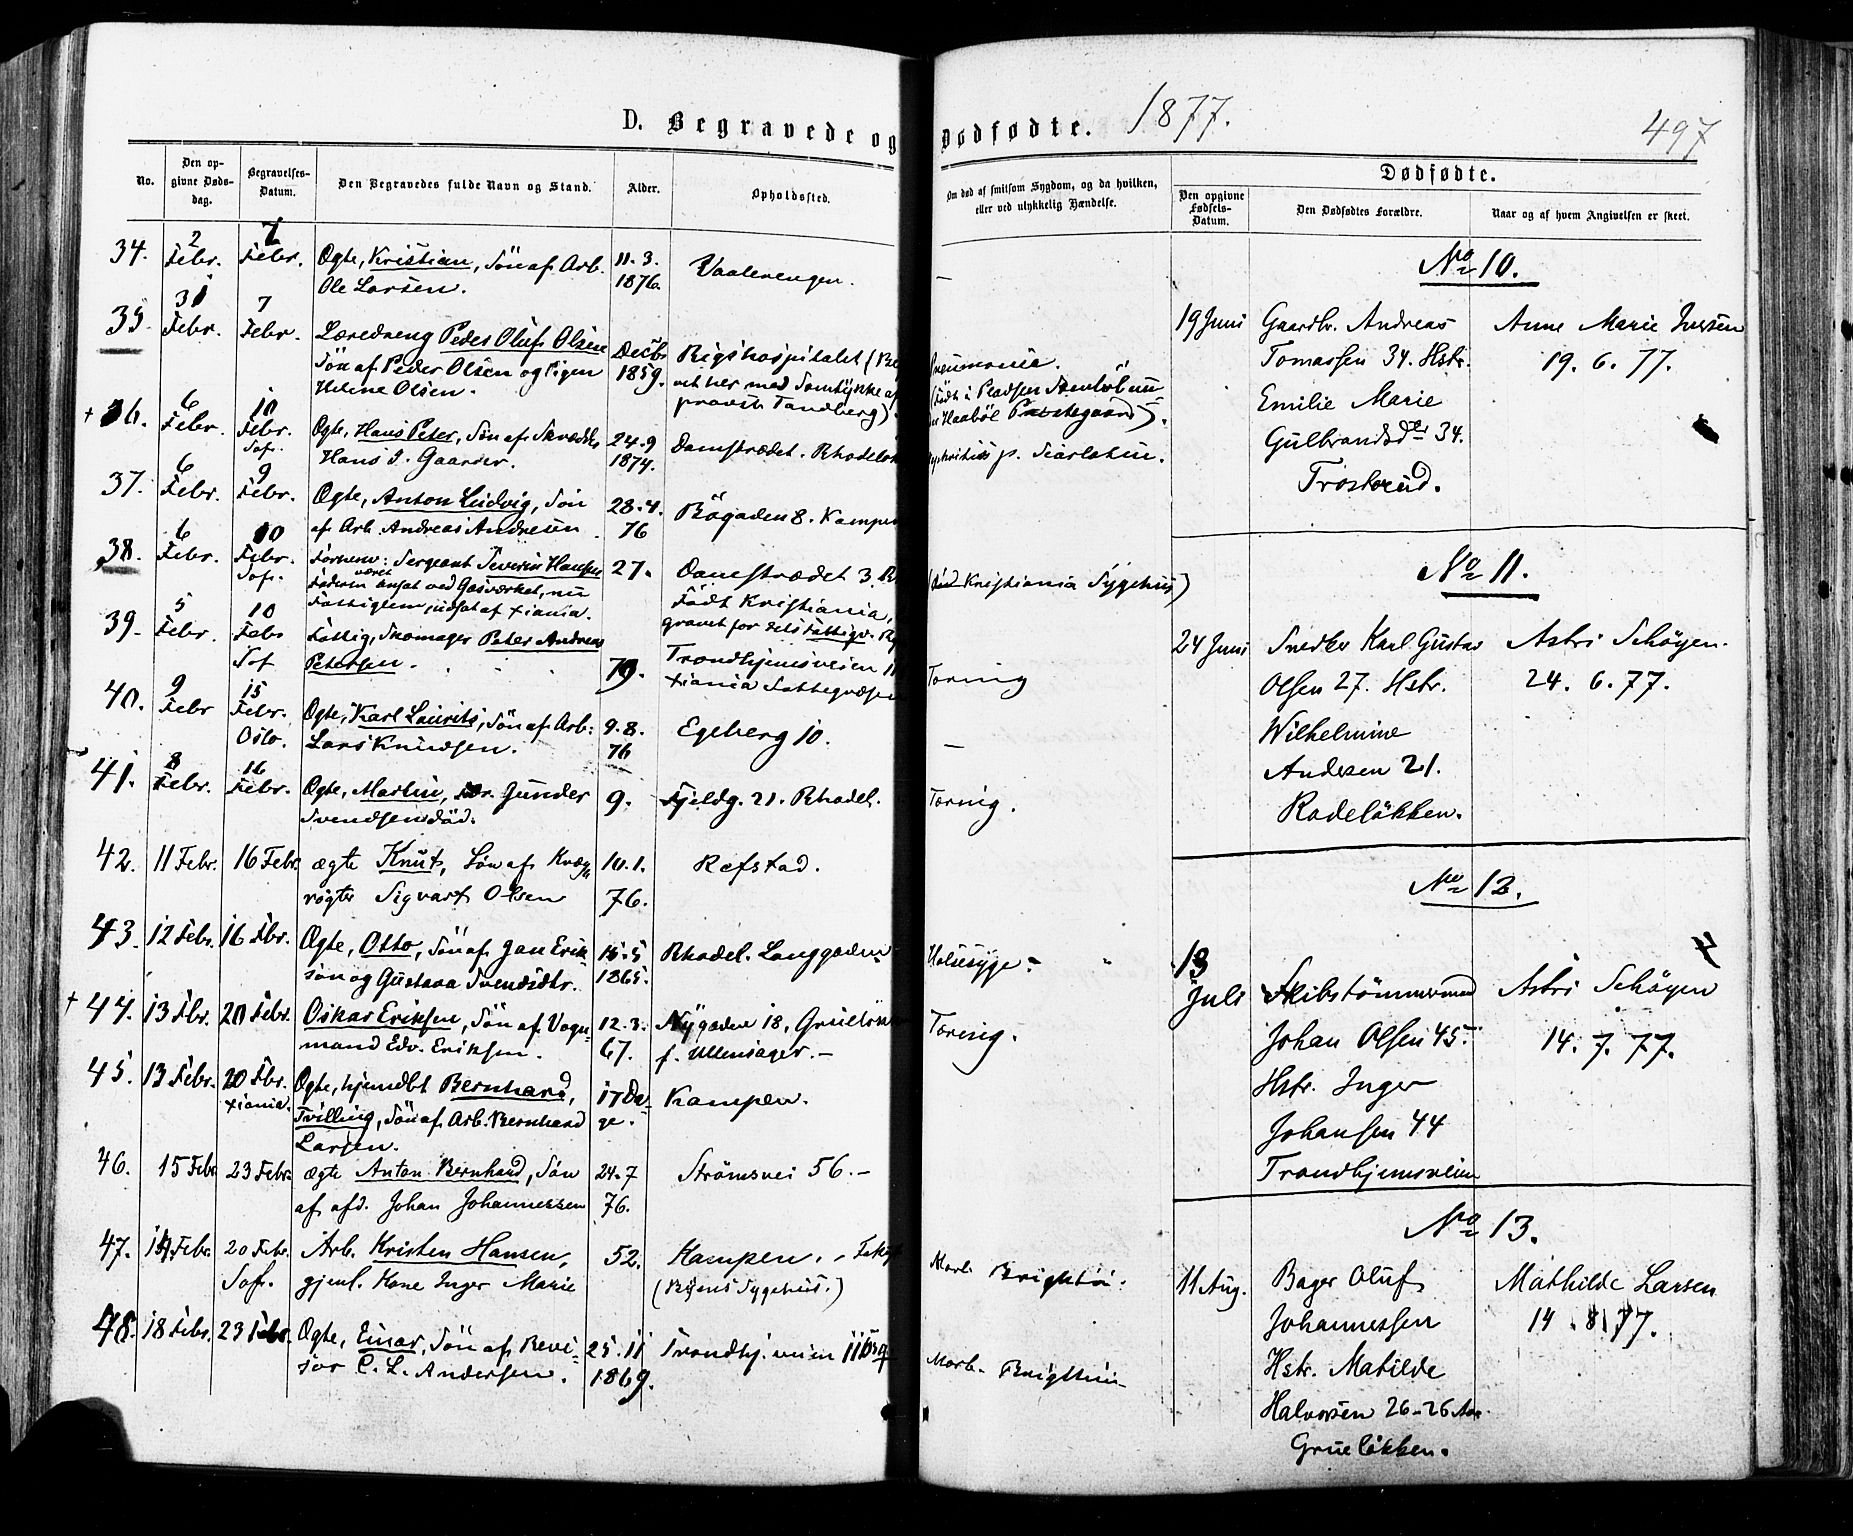 D. Begravede og Dødfødte. 1877.
497
No.
Den op-
givne Døds-
dag.
Begravelses-
Datum.
Den Begravedes fulde Navn og Stand.
Alder.
Opholdssted.
Om død af smitsom Sygdom, og da hvilken,
eller ved ulykkelig Hændelse.
Dødfødte.
Den opgivne
Fødsels-
Datum.
Den Dødfødtes Forældre.
Naar og af hvem Angivelsen er skeet.
34. 2 Febr. 7 Febr. Ægte, Kristian, Søn af Arb.
Ole Larsen.
11. 3.
1876.
Vaalerengen. —
35. 31 Febr. 7 Febr. Læredreng Peder Oluf Olsen
Søn af Peder Olsen og Pigen
Helene Olsen.
Decbr
1859.
Rigshospitalet
vet her med Samtykke af
provst Tandberg)
Pneumonia.
(Født i Pladsen
Præstegaard).
+ 36. 6 Febr. 10 Febr. Sof. Ægte, Hans Peter, Søn af Skrædder
Hans J. Gaarder.
24. 9
1874.
Damstrædet. Rhodeløk
p. Scarlatin.
37. 6 Febr. 9 Febr. Ægte, Anton Ludvig, Søn
af Arb. Andreas Andresen
28. 4.
76
Bögaden 8. Kampen
38. 6 Febr. 10 Febr. Sof. Fornenv: Sergeant Severin Hansen
været ansat ved Gasværket, nu
Fattiglem, udsat af Xiania.
27.
Damstrædet 3.
Født Kristiania,
(Død Kristiania Sygehus)
39. 5 Febr. 10 Febr Sof Fattig, Skomager Peter Andreas
Petersen.
79.
Trondhjemsveien 11
Xiania Fattegvæsen
Tæring
40. 9 Febr 15 Febr. Oslo. Ægte, Karl Laurits, Søn af Arb:
Lars Knudsen.
9. 8.
76
Egeberg 10. —
41. 8 Febr. 16 Febr. Ægte, Martin, Gunder
Svendsen død.
9.
Fjeldg. 21. Rhodel.
Tæring.
42. 11 Febr. 16 Febr. ægte Knut, Søn af Kvæg-
røgter Sigvart Olsen
10. 1.
76.
Refstad.
43. 12 Febr. 16 Fbr. Ægte, Otto, Søn af Jan Erik-
søn og Gustava Svendsdtr.
15. 5
1865.
Rhodel. Langgaden
Halsesyge.
+ 44. 13 Fbr. 20 Febr. Oskar Eriksen, Søn af Vogn-
mand Edv. Eriksen.
12. 3.
67.
Nygaden 18, Grüner
f. Ullensager. —
Tæring.
45. 13 Febr. 20 Fbr. Xiania. Ægte, hjemdbt Bernhard,
Tvilling, Søn af Arb. Bernhard
Larsen.
17 Da-
ge.
Kampen.
46. 15 Febr 23 Febr. ægte Anton Bernhard, Søn
af afd. Johan Johannessen
24. 7
76.
Strømsvei 56. —
47. 14 Febr. 20 Febr. Sof. Arb. Kristen Hansen,
gjenl. Kone Inger Marie
52.
Kampen.
(Byens Sygehus.)
Morb. Brightii.
48. 18 Febr. 23 Febr. Ægte, Einar, Søn af Revi-
sor C. L. Andersen.
25. 11
1869.
Trondhj. veien 11
Morb. Brigthii
No 10.
19 Juni Gaardbr. Andreas
Tomassen 34. Hstr.
Emilie Marie
Gulbrandsdtr 34.
Trosterud.
Anne Marie Iversen
19. 6. 77.
No 11.
24 Juni Snedker Karl Gustav
Olsen 27. Hstr.
Wilhelmine
Andesen 21.
Rodeløkken.
Astri Schøyen.
24. 6. 77.
No 12.
13 Juli Skibstømmermand
Johan Olsen 45.
Hstr. Inger
Johansen 44
Trondhjemsveien
Astri Schøyen
14. 7. 77.
No 13.
11 Aug. Bager Oluf
Johannessen
Hstr. Matilde
Halvorsen 26-26 Aar.
Grueløkken.
Mathilde Larsen
14. 8. 77.